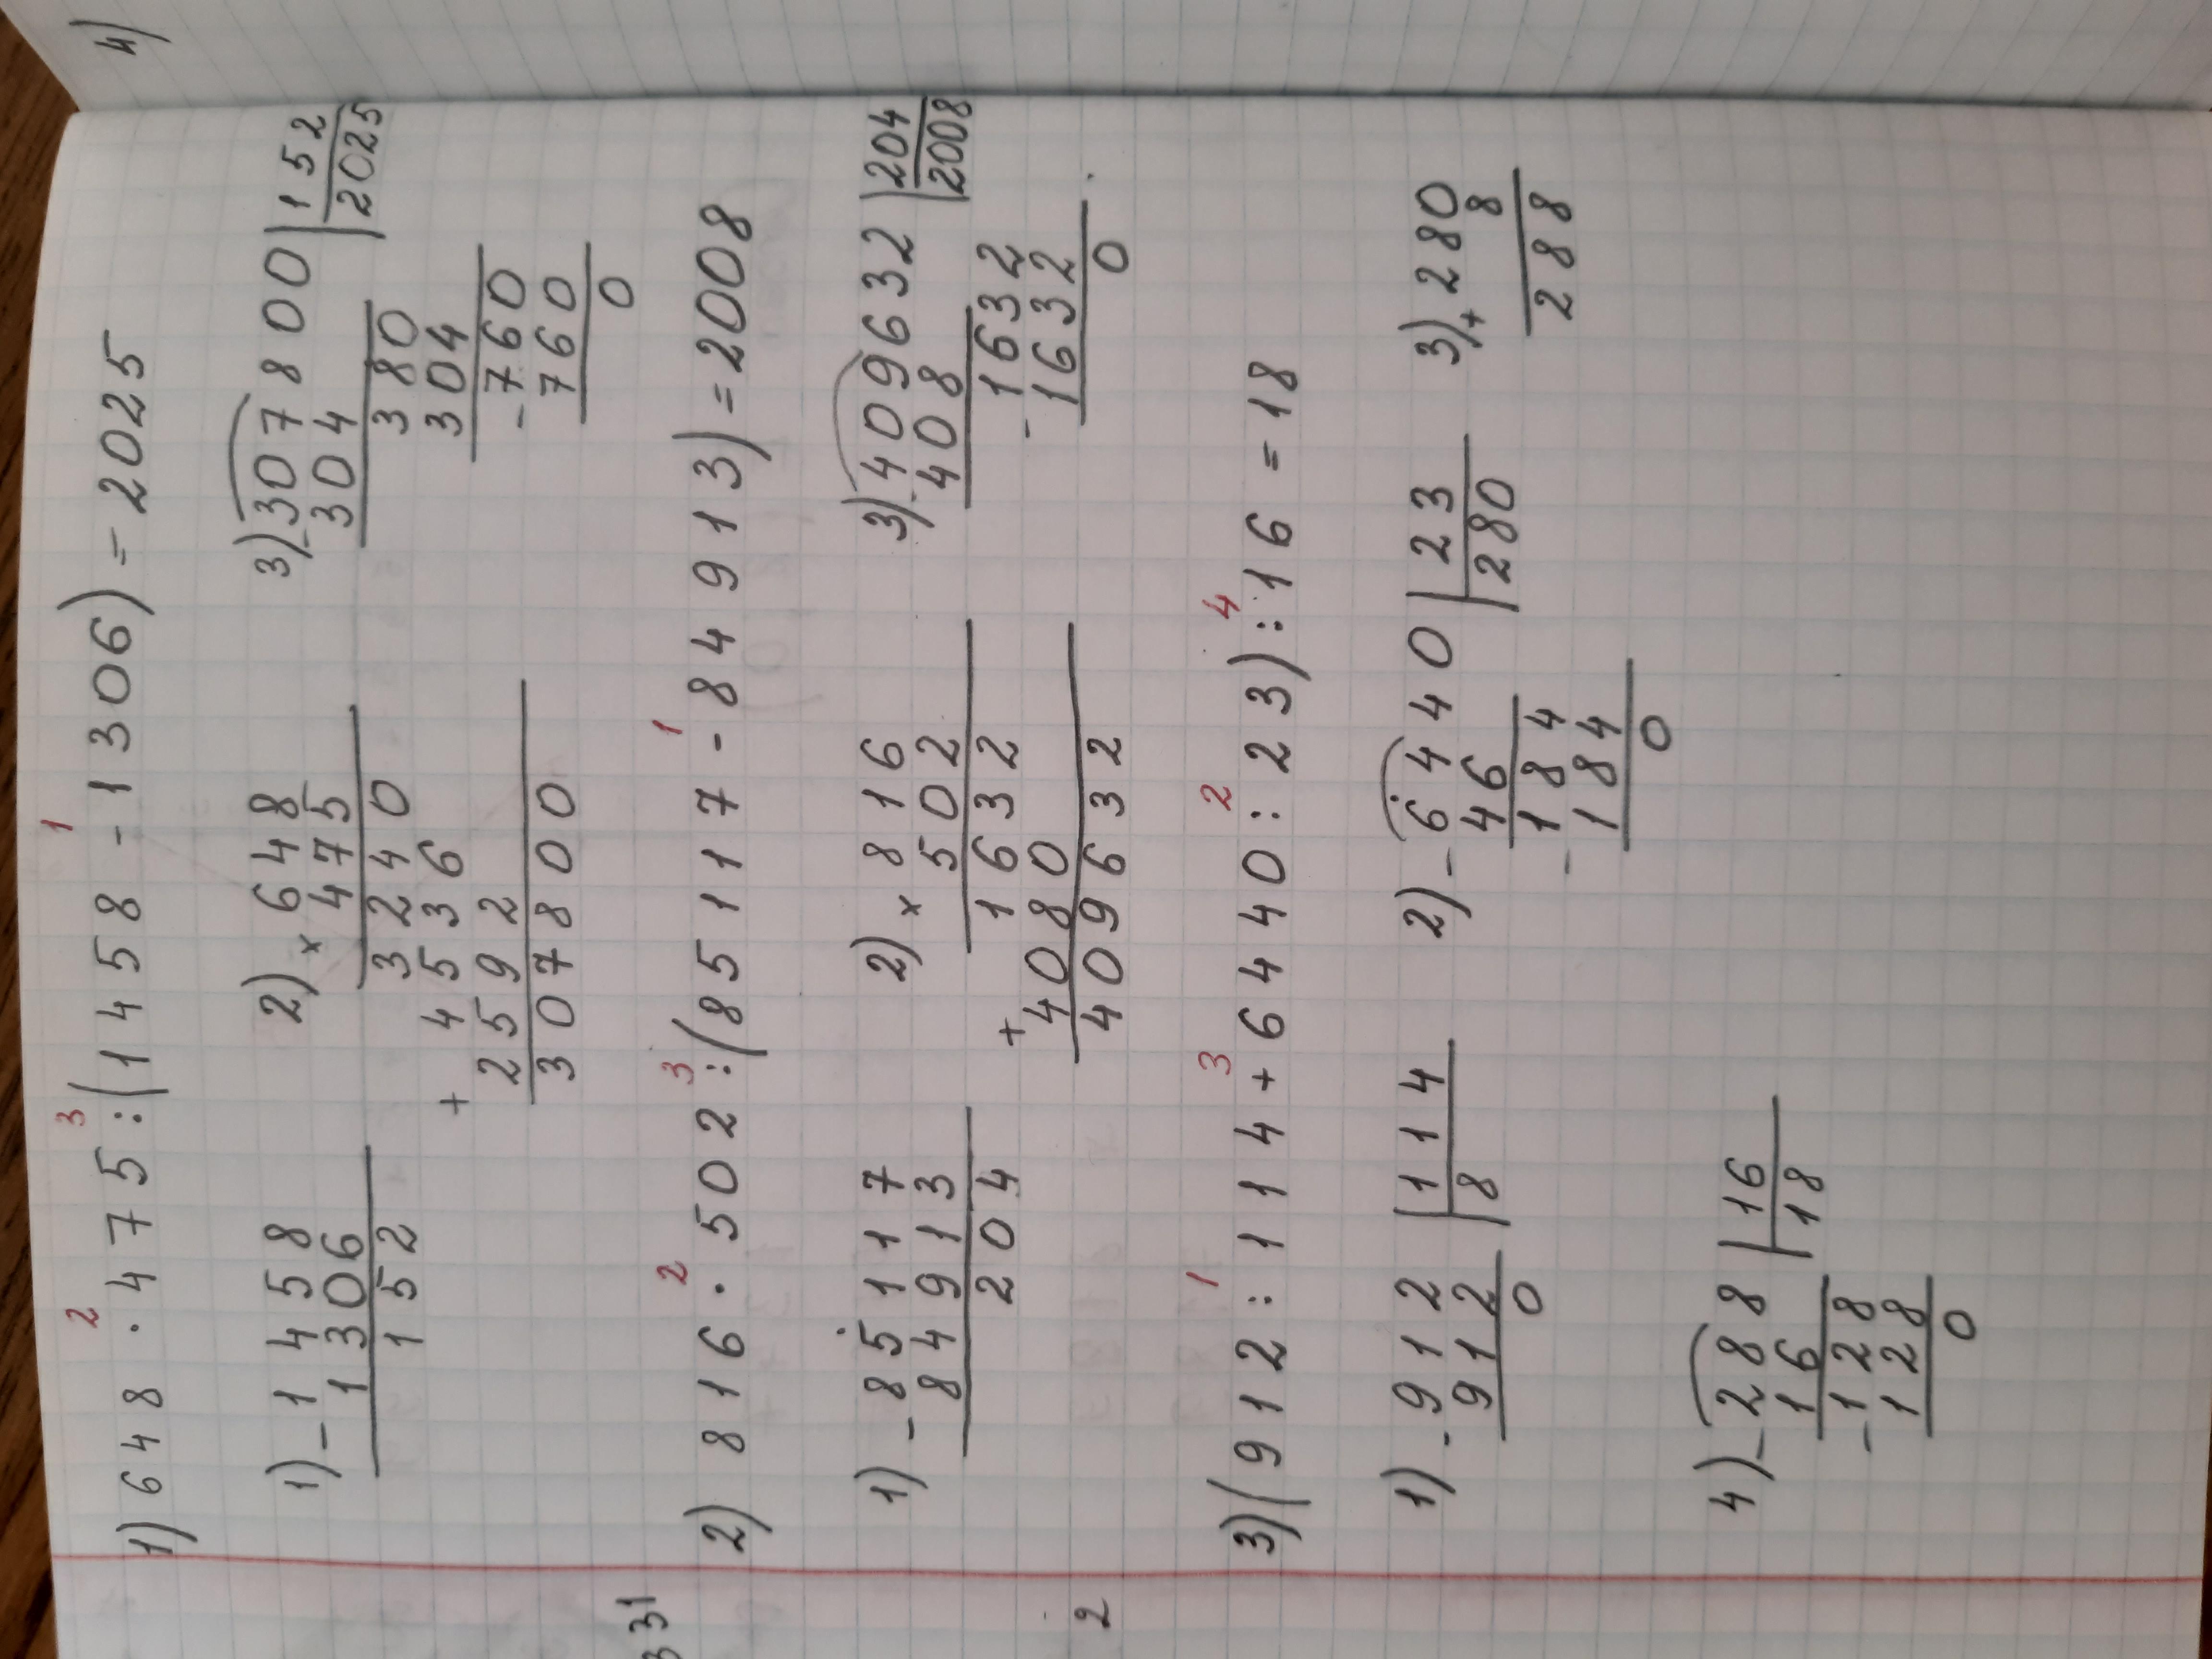 4)
1) 648 · 475 : (1458 - 1306) = 2025
2 3 1
1) - 1458
1306
152
2) × 648
475
3240
4536
+ 2592
307800
3) - 307800 | 152
304 | 2025
380
304
- 760
760
0
2) 816 · 502 : (85117 - 84913) = 2008
2 3 1
1) - 85117
84913
204
2) × 816
502
1632
+ 4080
409632
3) - 409632 | 204
408 | 2008
- 1632
1632
0
3) (912 : 114 + 6440 : 23) : 16 = 18
1 3 2 4
1) - 912 | 114
912 | 8
0
2) - 6440 | 23
46 | 280
- 184
184
0
3) + 280
8
288
4) - 288 | 16
16 | 18
- 128
128
0
331
2